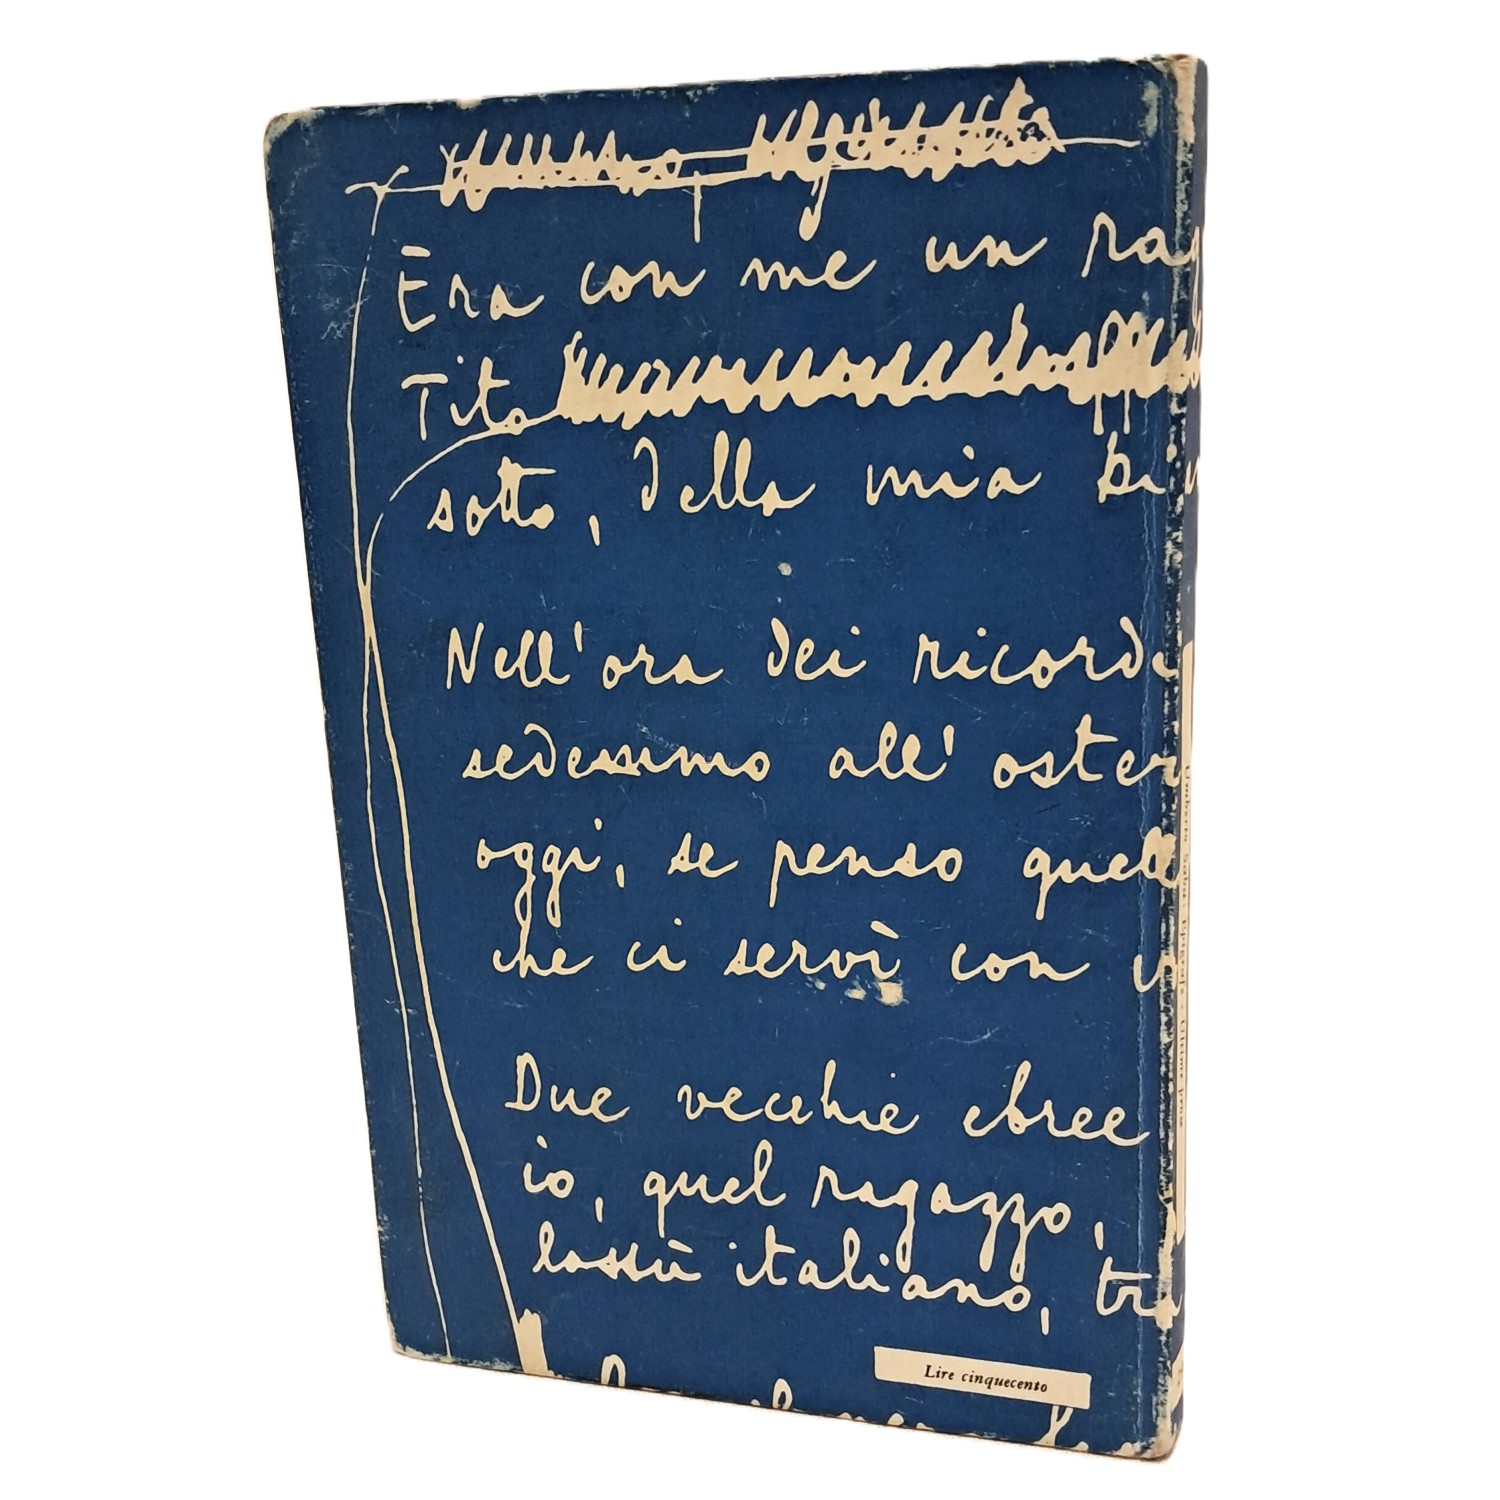 Era con me un rag
Tito
sotto, della mia bi
Nell'ora dei ricordi
sedessimo all'oster
oggi, se penso quell
che ci servì con
Due vecchie ebree
io, quel ragazzo,
lassù italiano, tra
Lire cinquecento
Umberto Saba: Epigrafe - Ultime prose